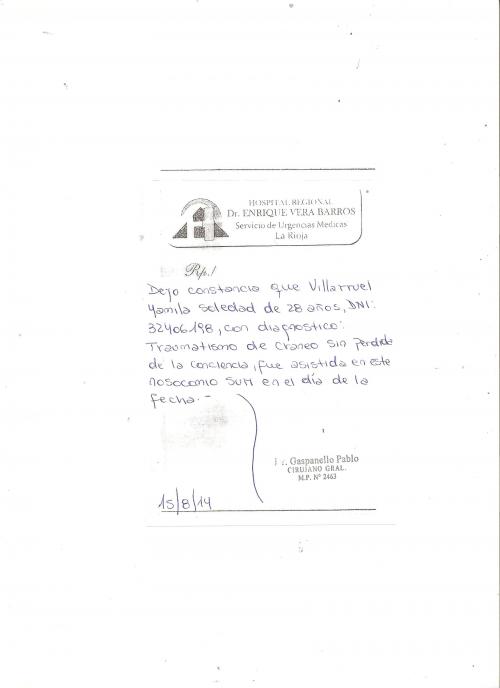 HOSPITAL REGIONAL
Dr. ENRIQUE VERA BARROS
Servicio de Urgencias Medicas
La Rioja
Rp./
Dejo constancia que Villarruel
Yamila Soledad de 28 años, DNI:
32406198, con diagnostico:
Traumatismo de Craneo sin perdida
de la conciencia, fue asistida en este
nosocomio SUM en el día de la
fecha.-
Gaspanello Pablo
CIRUJANO GRAL.
M.P. Nº 2463
15/8/14